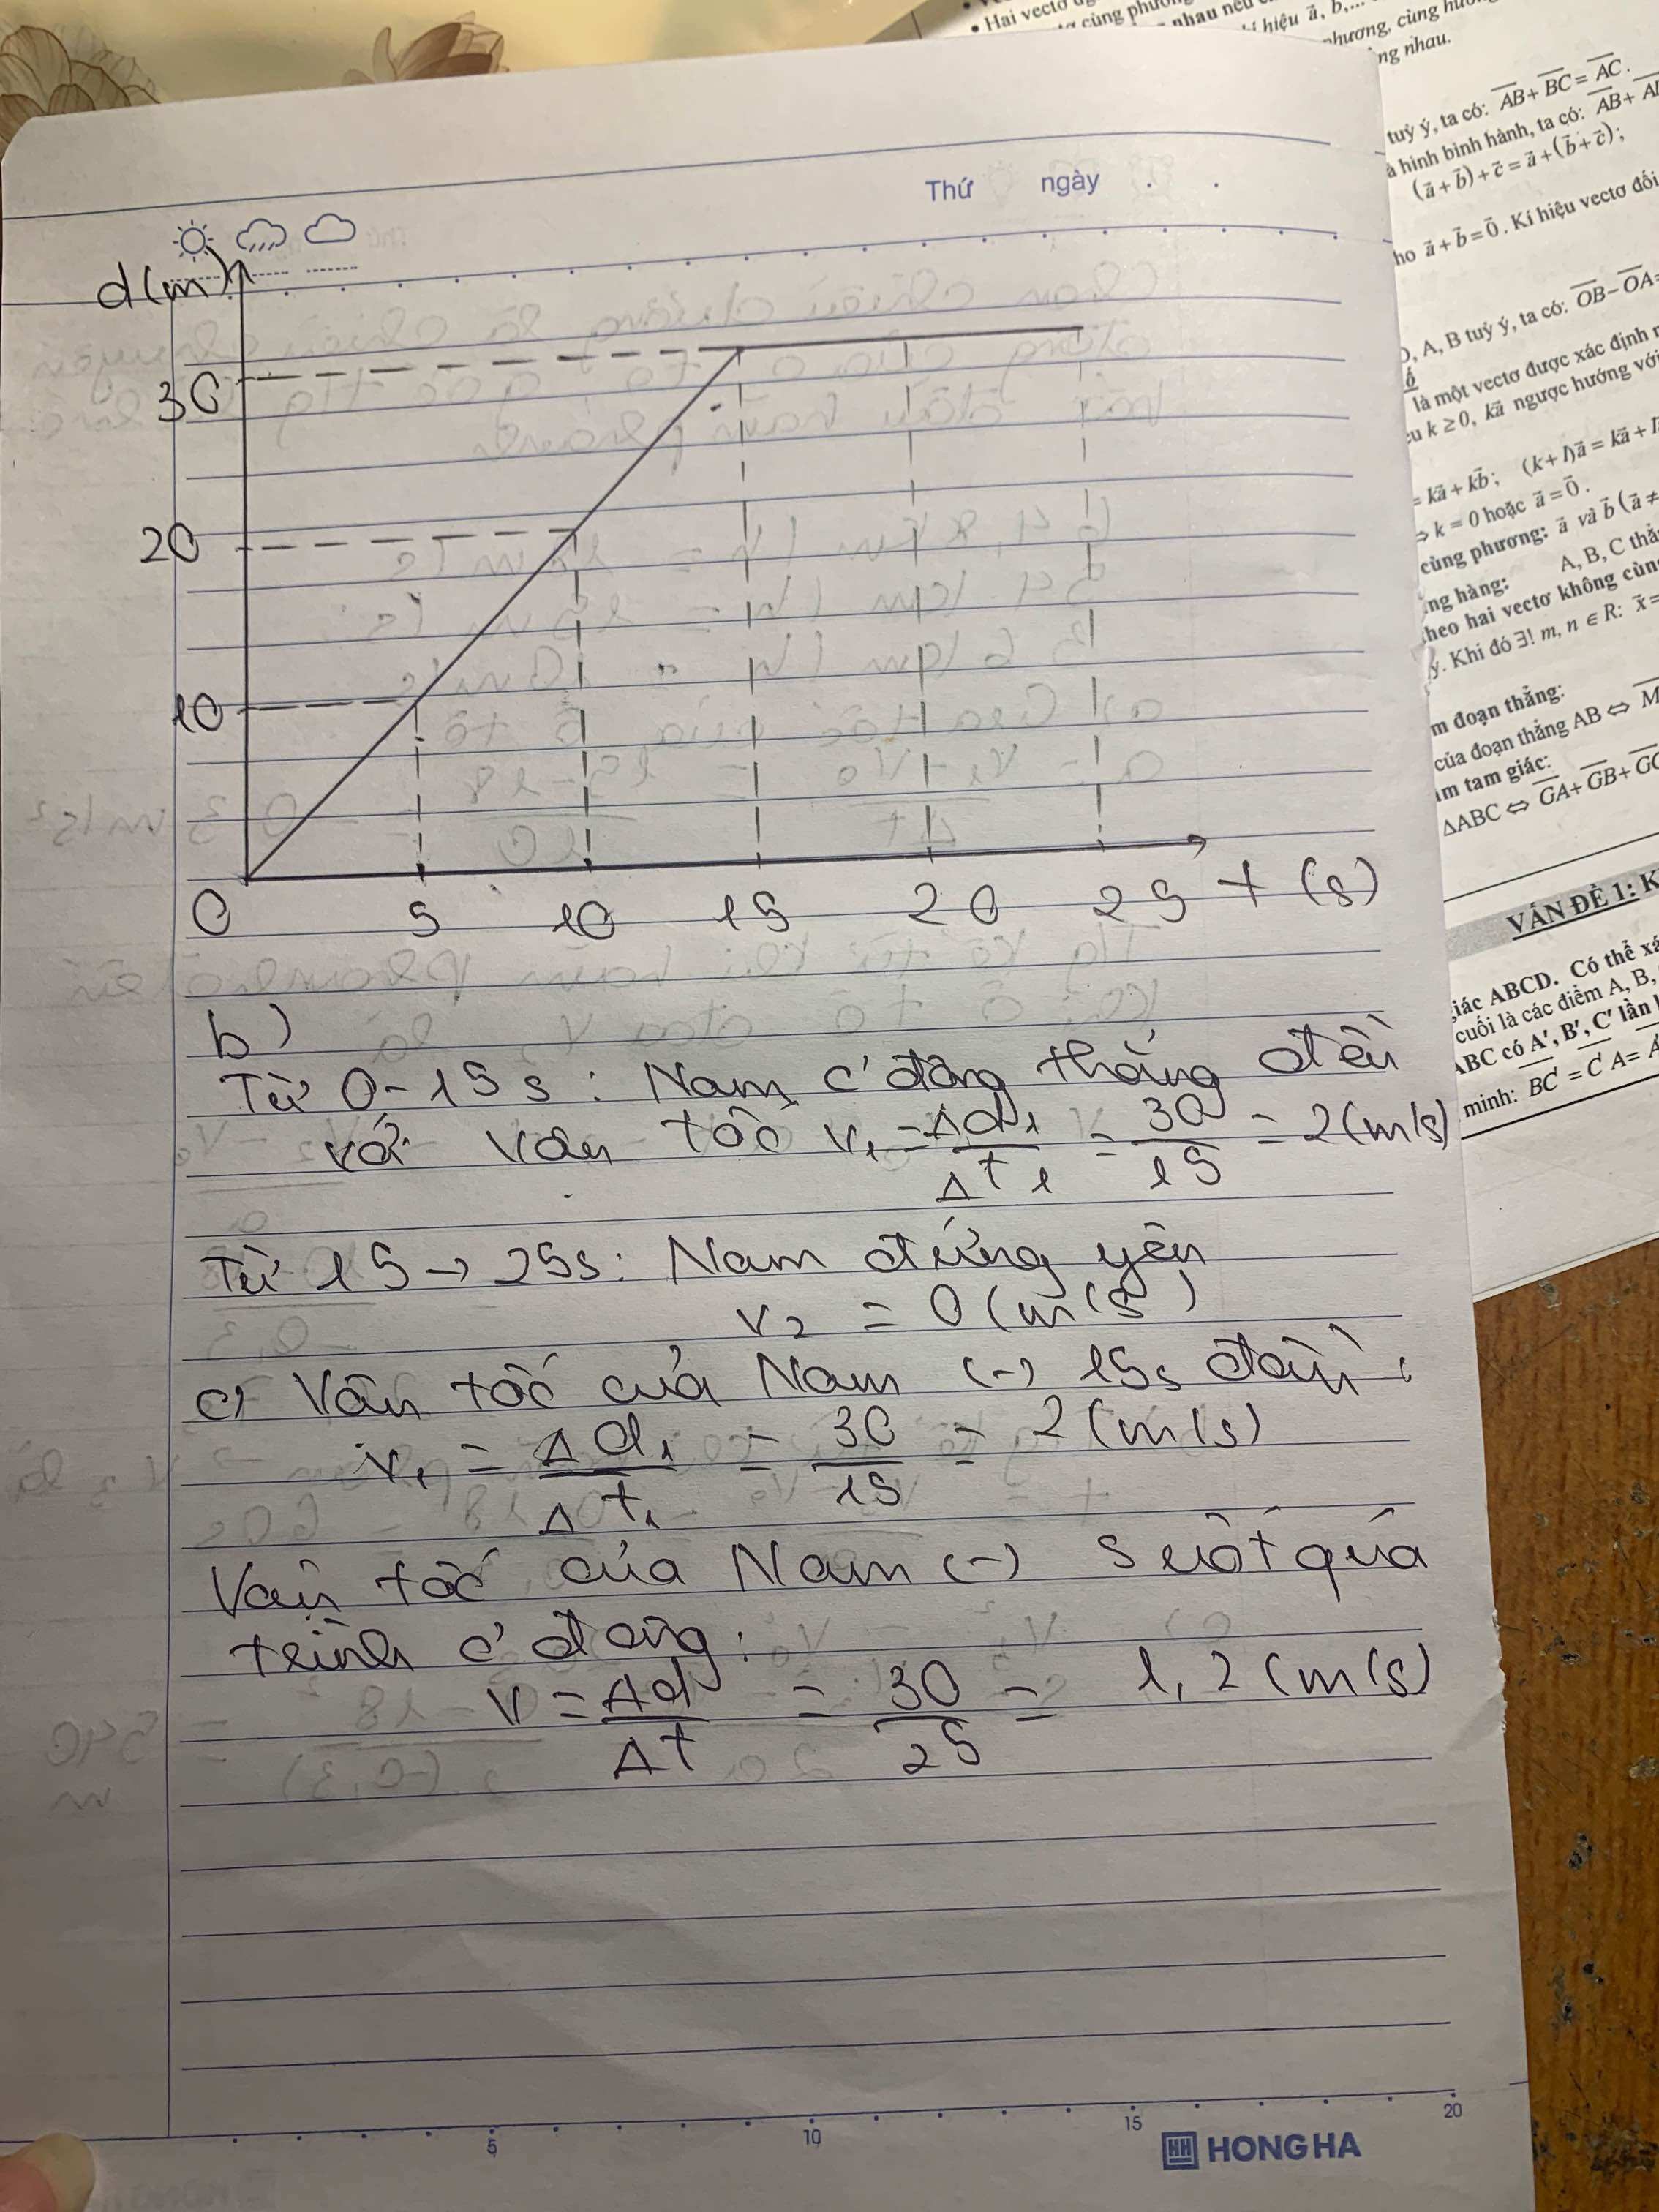 • Hai vectơ
cùng phương
nhau nếu
kí hiệu a⃗, b⃗,...
phương, cùng
ng nhau.
tuỳ ý, ta có: AB + BC = AC.
à hình bình hành, ta có: AB +
(a⃗ + b⃗) + c⃗ = a⃗ + (b⃗ + c⃗);
ho a⃗ + b⃗ = 0⃗. Kí hiệu vectơ đối
O, A, B tuỳ ý, ta có: OB − OA =
là một vectơ được xác định
u k ≥ 0, ka⃗ ngược hướng với
= ka⃗ + kb⃗; (k + l)a⃗ = ka⃗ +
⇔ k = 0 hoặc a⃗ = 0⃗.
cùng phương: a⃗ và b⃗ (a⃗ ≠
ng hàng: A, B, C
theo hai vectơ không cùng
ý. Khi đó ∃! m, n ∈ R: x⃗ =
m đoạn thẳng:
của đoạn thẳng AB ⇔
m tam giác:
ΔABC ⇔ GA + GB +
VẤN ĐỀ 1:
giác ABCD. Có thể
cuối là các điểm A, B,
ABC có A', B', C' lần
minh: BC' = C'A =
Thứ ngày
d(m)
30
20
10
0 5 10 15 20 25 t (s)
b)
Từ 0-15s: Nam c' động thẳng đều
với vận tốc v₁ = Δd₁/Δt₁ = 30/15 = 2(m/s)
Từ 15 → 25s: Nam đứng yên
v₂ = 0 (m/s)
c) Vận tốc của Nam (-) 15s đầu:
v₁ = Δd₁/Δt₁ = 30/15 = 2 (m/s)
Vận tốc của Nam (-) suốt quá
trình c' động:
v = Δd/Δt = 30/25 = 1,2 (m/s)
5 10 15 20
HH HONG HA